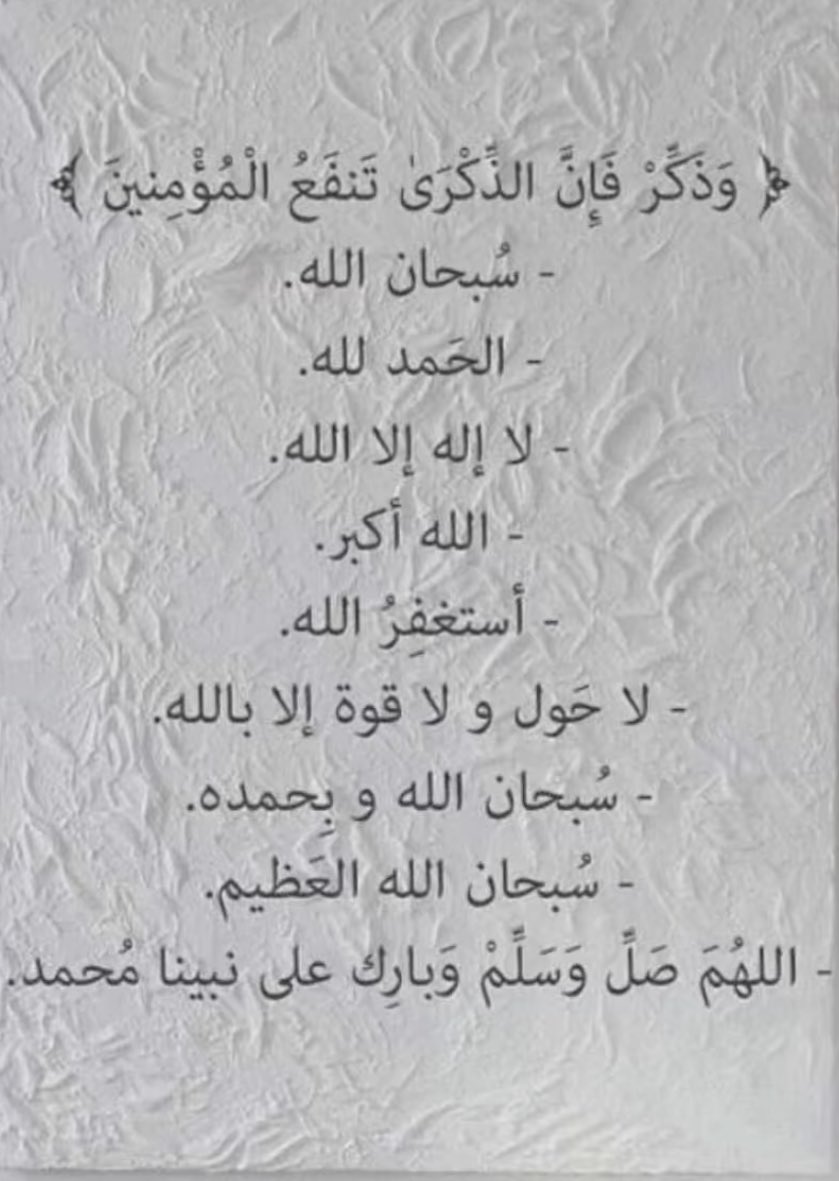 ﴿ وَذَكِّرْ فَإِنَّ الذِّكْرَىٰ تَنفَعُ الْمُؤْمِنينَ ﴾
- سُبحان الله.
- الحَمد لله.
- لا إله إلا الله.
- الله أكبر.
- أستغفِرُ الله.
- لا حَول و لا قوة إلا بالله.
- سُبحان الله و بِحمده.
- سُبحان الله العَظيم.
- اللهُمَ صَلِّ وَسَلِّمْ وَبارِك على نبينا مُحمد.